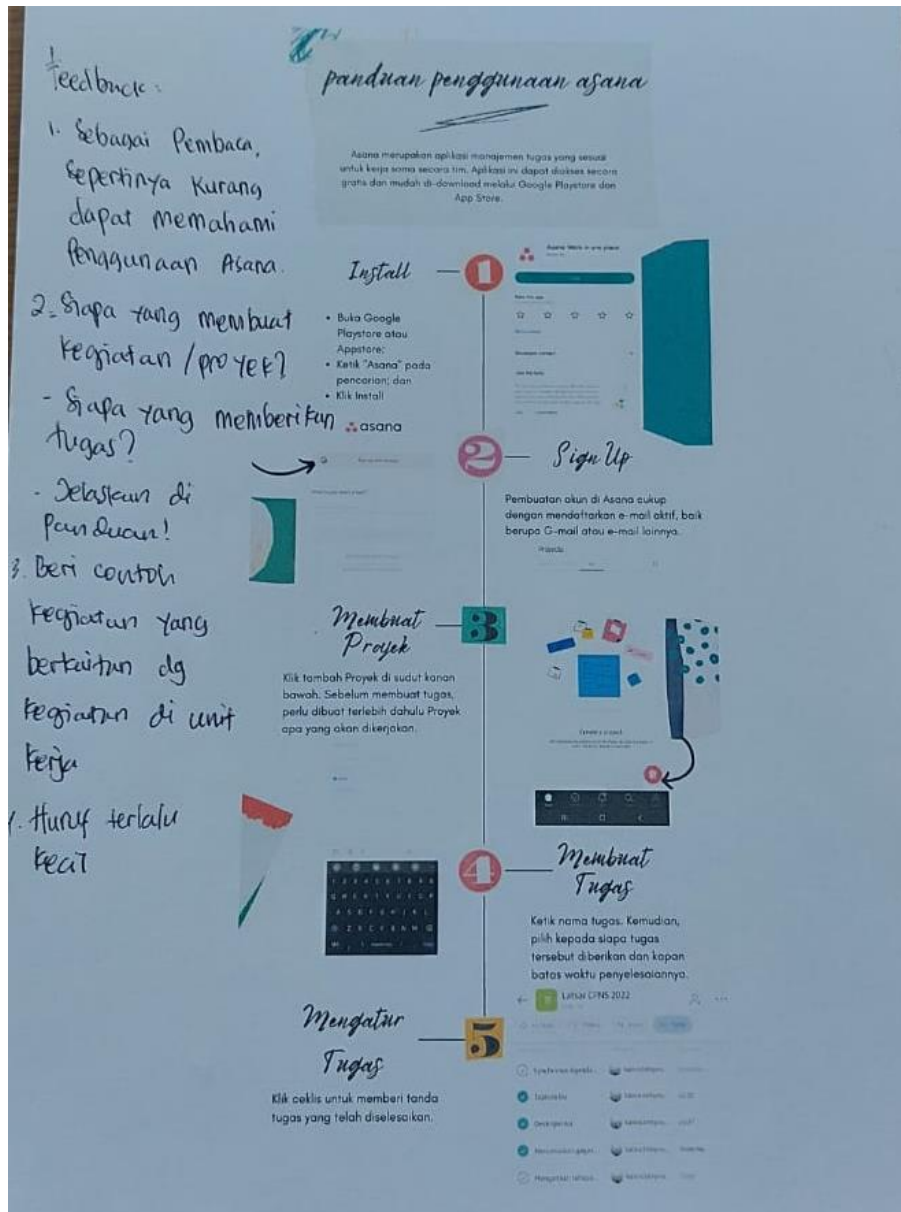 Feedback:
1. Sebagai Pembaca,
sepertinya kurang
dapat memahami
Penggunaan Asana.
2. Siapa yang membuat
kegiatan/proyek?
- Siapa yang memberikan
tugas?
- Jelaskan di
Panduan!
3. Beri contoh
kegiatan yang
berkaitan dg
kegiatan di unit
kerja
4. Huruf terlalu
kecil
panduan penggunaan asana
Asana merupakan aplikasi manajemen tugas yang sesuai
untuk kerja sama secara tim. Aplikasi ini dapat diakses secara
gratis dan mudah di-download melalui Google Playstore dan
App Store.
Install
1
• Buka Google
Playstore atau
Appstore;
• Ketik "Asana" pada
pencarian; dan
• Klik Install
asana
2
Sign Up
Pembuatan akun di Asana cukup
dengan mendaftarkan e-mail aktif, baik
berupa G-mail atau e-mail lainnya.
Projects
Membuat
Proyek
3
Klik tambah Proyek di sudut kanan
bawah. Sebelum membuat tugas,
perlu dibuat terlebih dahulu Proyek
apa yang akan dikerjakan.
Create a project
4
Membuat
Tugas
Ketik nama tugas. Kemudian,
pilih kepada siapa tugas
tersebut diberikan dan kapan
batas waktu penyelesaiannya.
Mengatur
Tugas
5
Klik ceklis untuk memberi tanda
tugas yang telah diselesaikan.
Latsar CPNS 2022